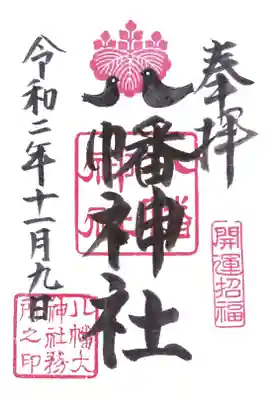 奉拝
開運招福
八幡神社
令和二年十一月九日
八幡大
神社務
所之印